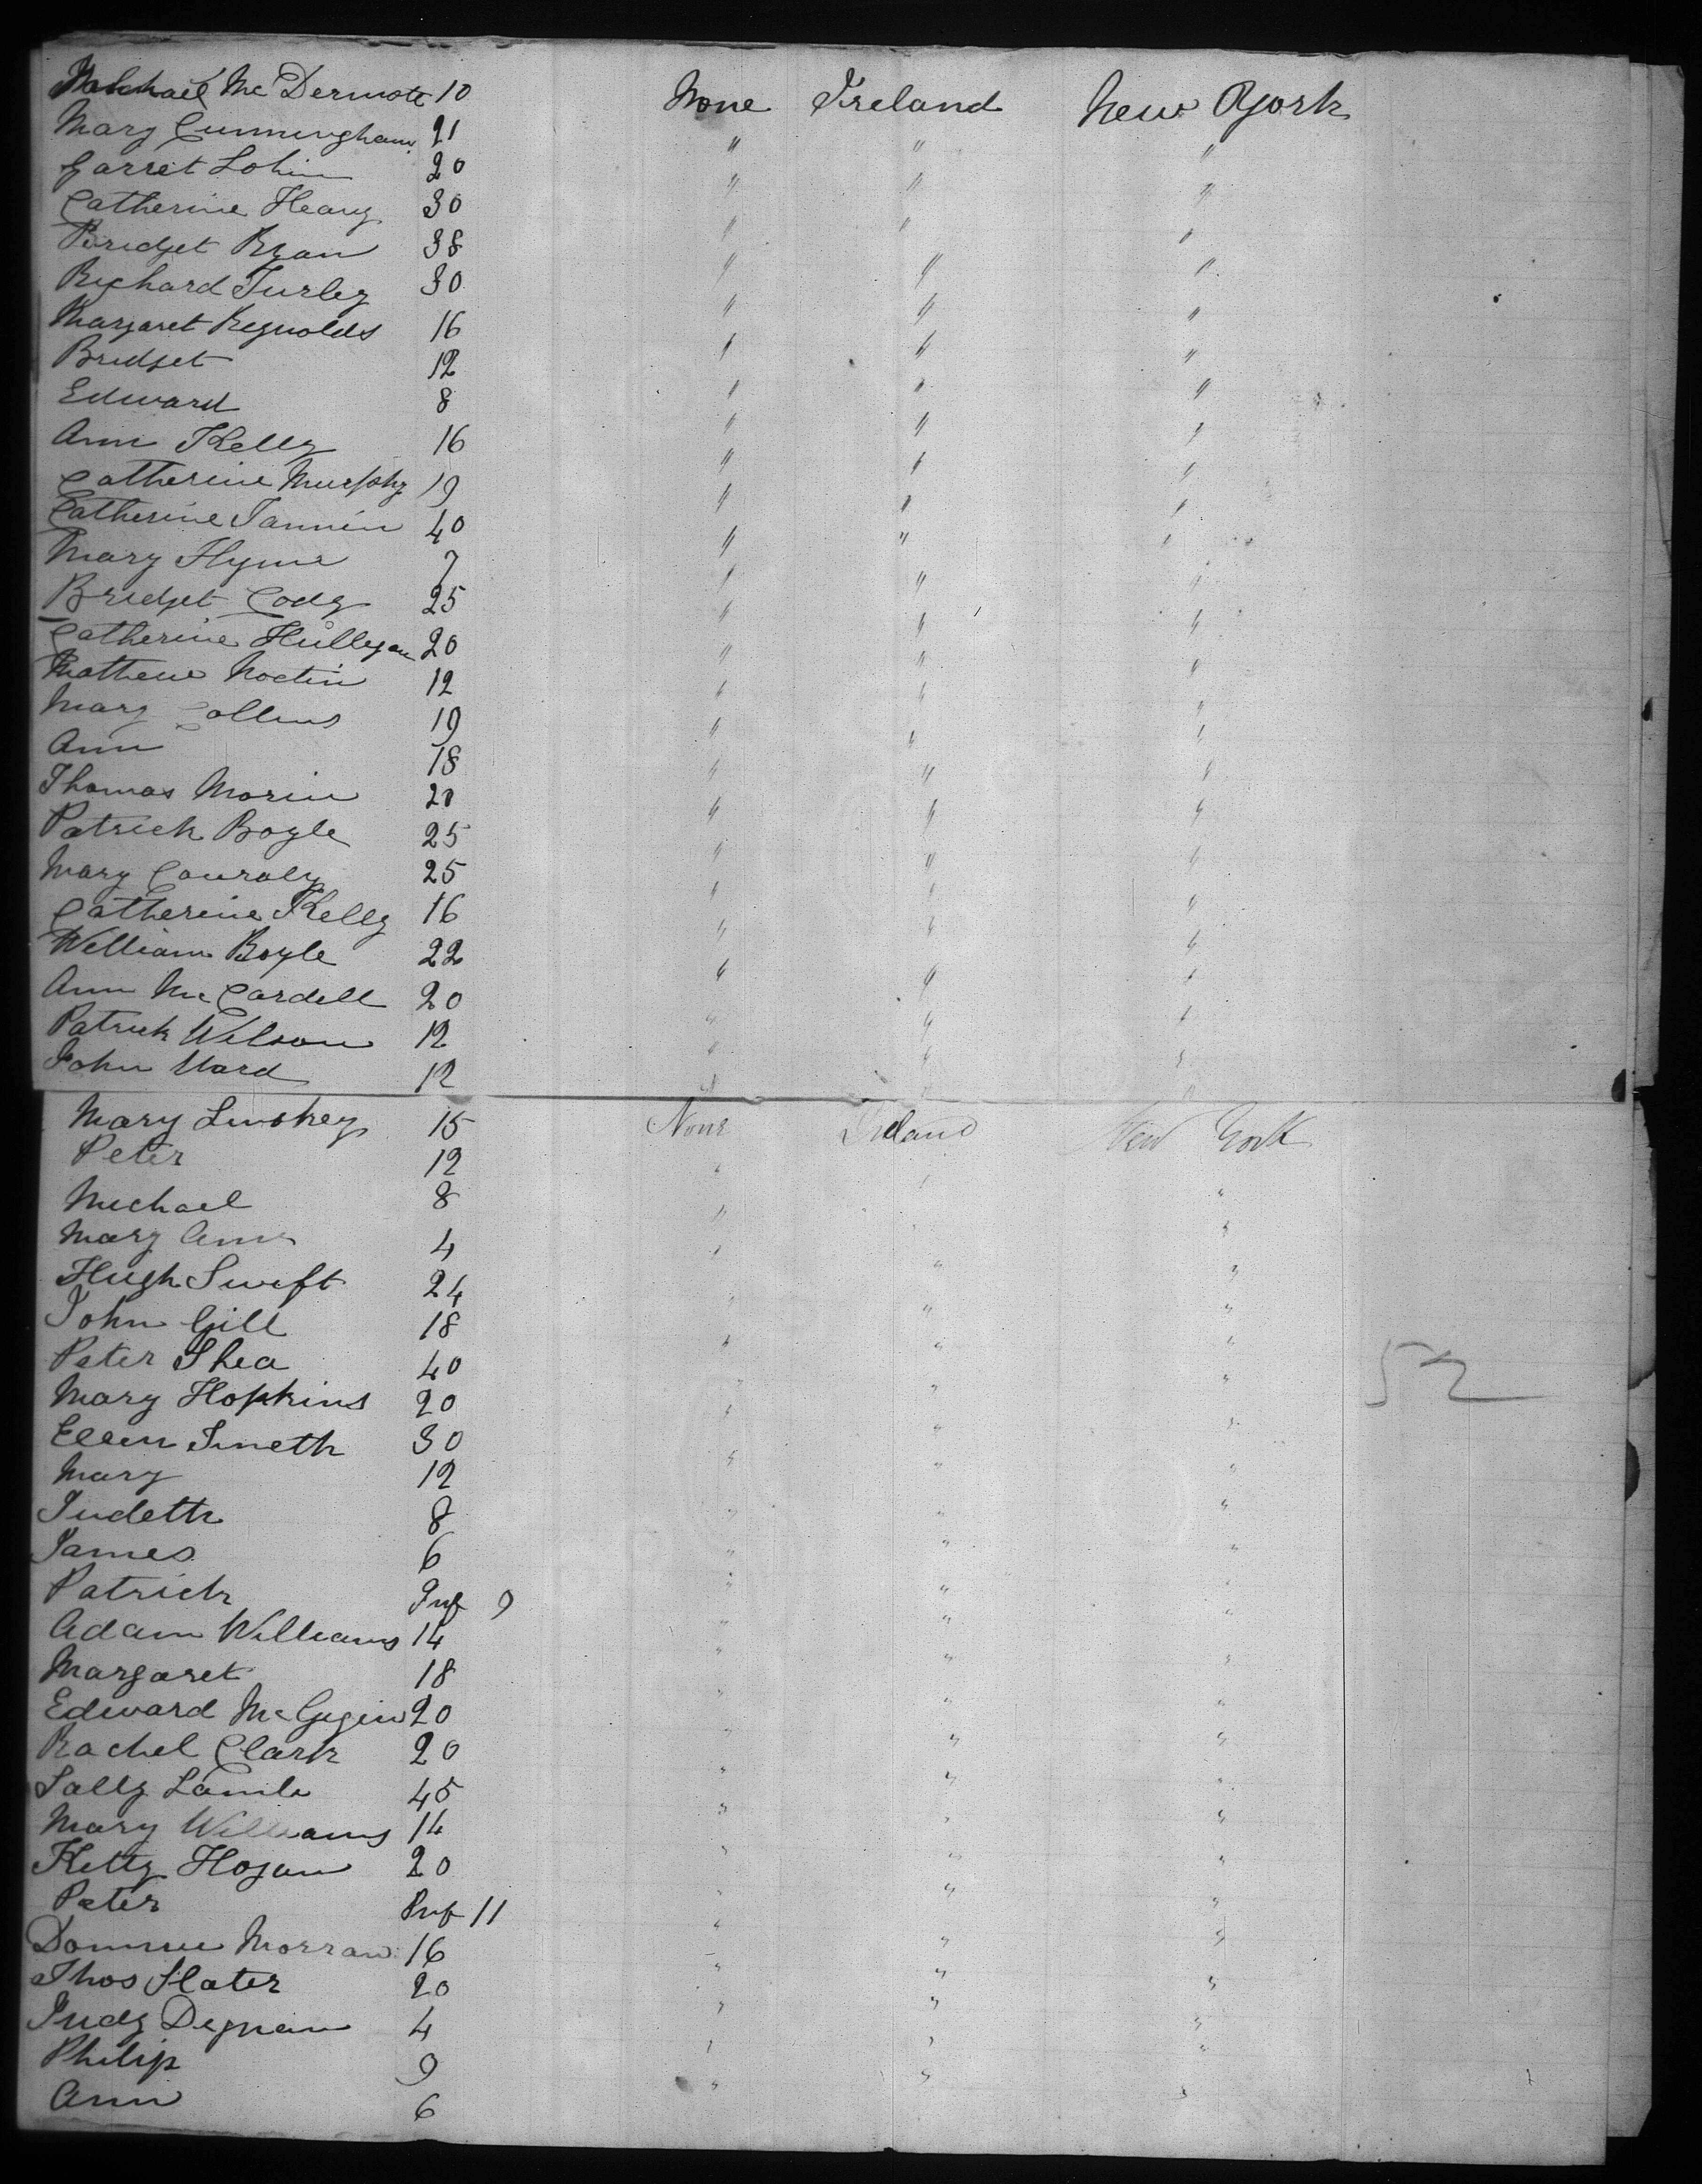 Michael Mc Dermott 10 None Ireland New York
Mary Cunningham 21 " " "
Garret Lohin 20 " " "
Catherine Heany 30 " " "
Bridget Ryan 38 " " "
Richard Turley 30 " " "
Margaret Reynolds 16 " " "
Bridget 12 " " "
Edward 8 " " "
Ann Kelly 16 " " "
Catherine Murphy 19 " " "
Catherine Tannin 40 " " "
Mary Flynn 7 " " "
Bridget Cody 25 " " "
Catherine Hulligan 20 " " "
Mathew Noctin 12 " " "
Mary Collins 19 " " "
Ann 18 " " "
Thomas Morin 20 " " "
Patrick Boyle 25 " " "
Mary Conroly 25 " " "
Catherine Kelly 16 " " "
William Boyle 22 " " "
Ann Mc Cardell 20 " " "
Patrick Wilson 12 " " "
John Ward 12 " " "
Mary Linskey 15 None Ireland New York
Peter 12 " " "
Michael 8 " " "
Mary Ann 4 " " "
Hugh Swift 24 " " "
John Gill 18 " " "
Peter Shea 40 " " "
Mary Hopkins 20 " " "
Ellen Smeth 30 " " "
Mary 12 " " "
Judeth 8 " " "
James 6 " " "
Patrick Inf 9 " " "
Adam Williams 14 " " "
Margaret 18 " " "
Edward McGigin 20 " " "
Rachel Clark 20 " " "
Sally Lamb 45 " " "
Mary Williams 14 " " "
Kitty Hogan 20 " " "
Peter Inf 11 " " "
Morran 16 " " "
Thos Slater 20 " " "
Judy Degnan 4 " " "
Philip 9 " " "
Ann 6 " " "
52